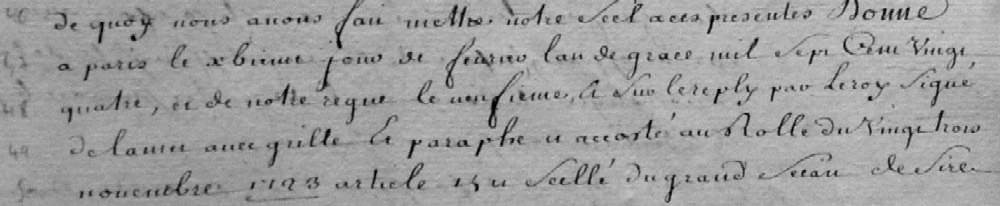 de quoy nous avons fai mettre notre Scel a ces presentes Donne
a paris le xbieme jour de fevrier lan de grace mil Sept Cent Vingt
quatre, et de notre regne le neufieme, Et Sur le reply par Le roy Signé
avec grille Et paraphe et accosté au Rolle du Vingt trois
novembre 1723 article Scellé du grand Sceau de Sire